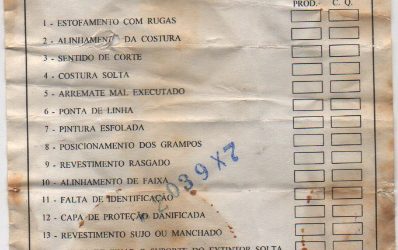 PROD. C. Q.
1 - ESTOFAMENTO COM RUGAS
2 - ALINHAMENTO DA COSTURA
3 - SENTIDO DE CORTE
4 - COSTURA SOLTA
5 - ARREMATE MAL EXECUTADO
6 - PONTA DE LINHA
7 - PINTURA ESFOLADA
8 - POSICIONAMENTO DOS GRAMPOS
9 - REVESTIMENTO RASGADO
10 - ALINHAMENTO DE FAIXA
11 - FALTA DE IDENTIFICAÇÃO
12 - CAPA DE PROTEÇÃO DANIFICADA
13 - REVESTIMENTO SUJO OU MANCHADO
O SUPORTE DO EXTINTOR SOLTA